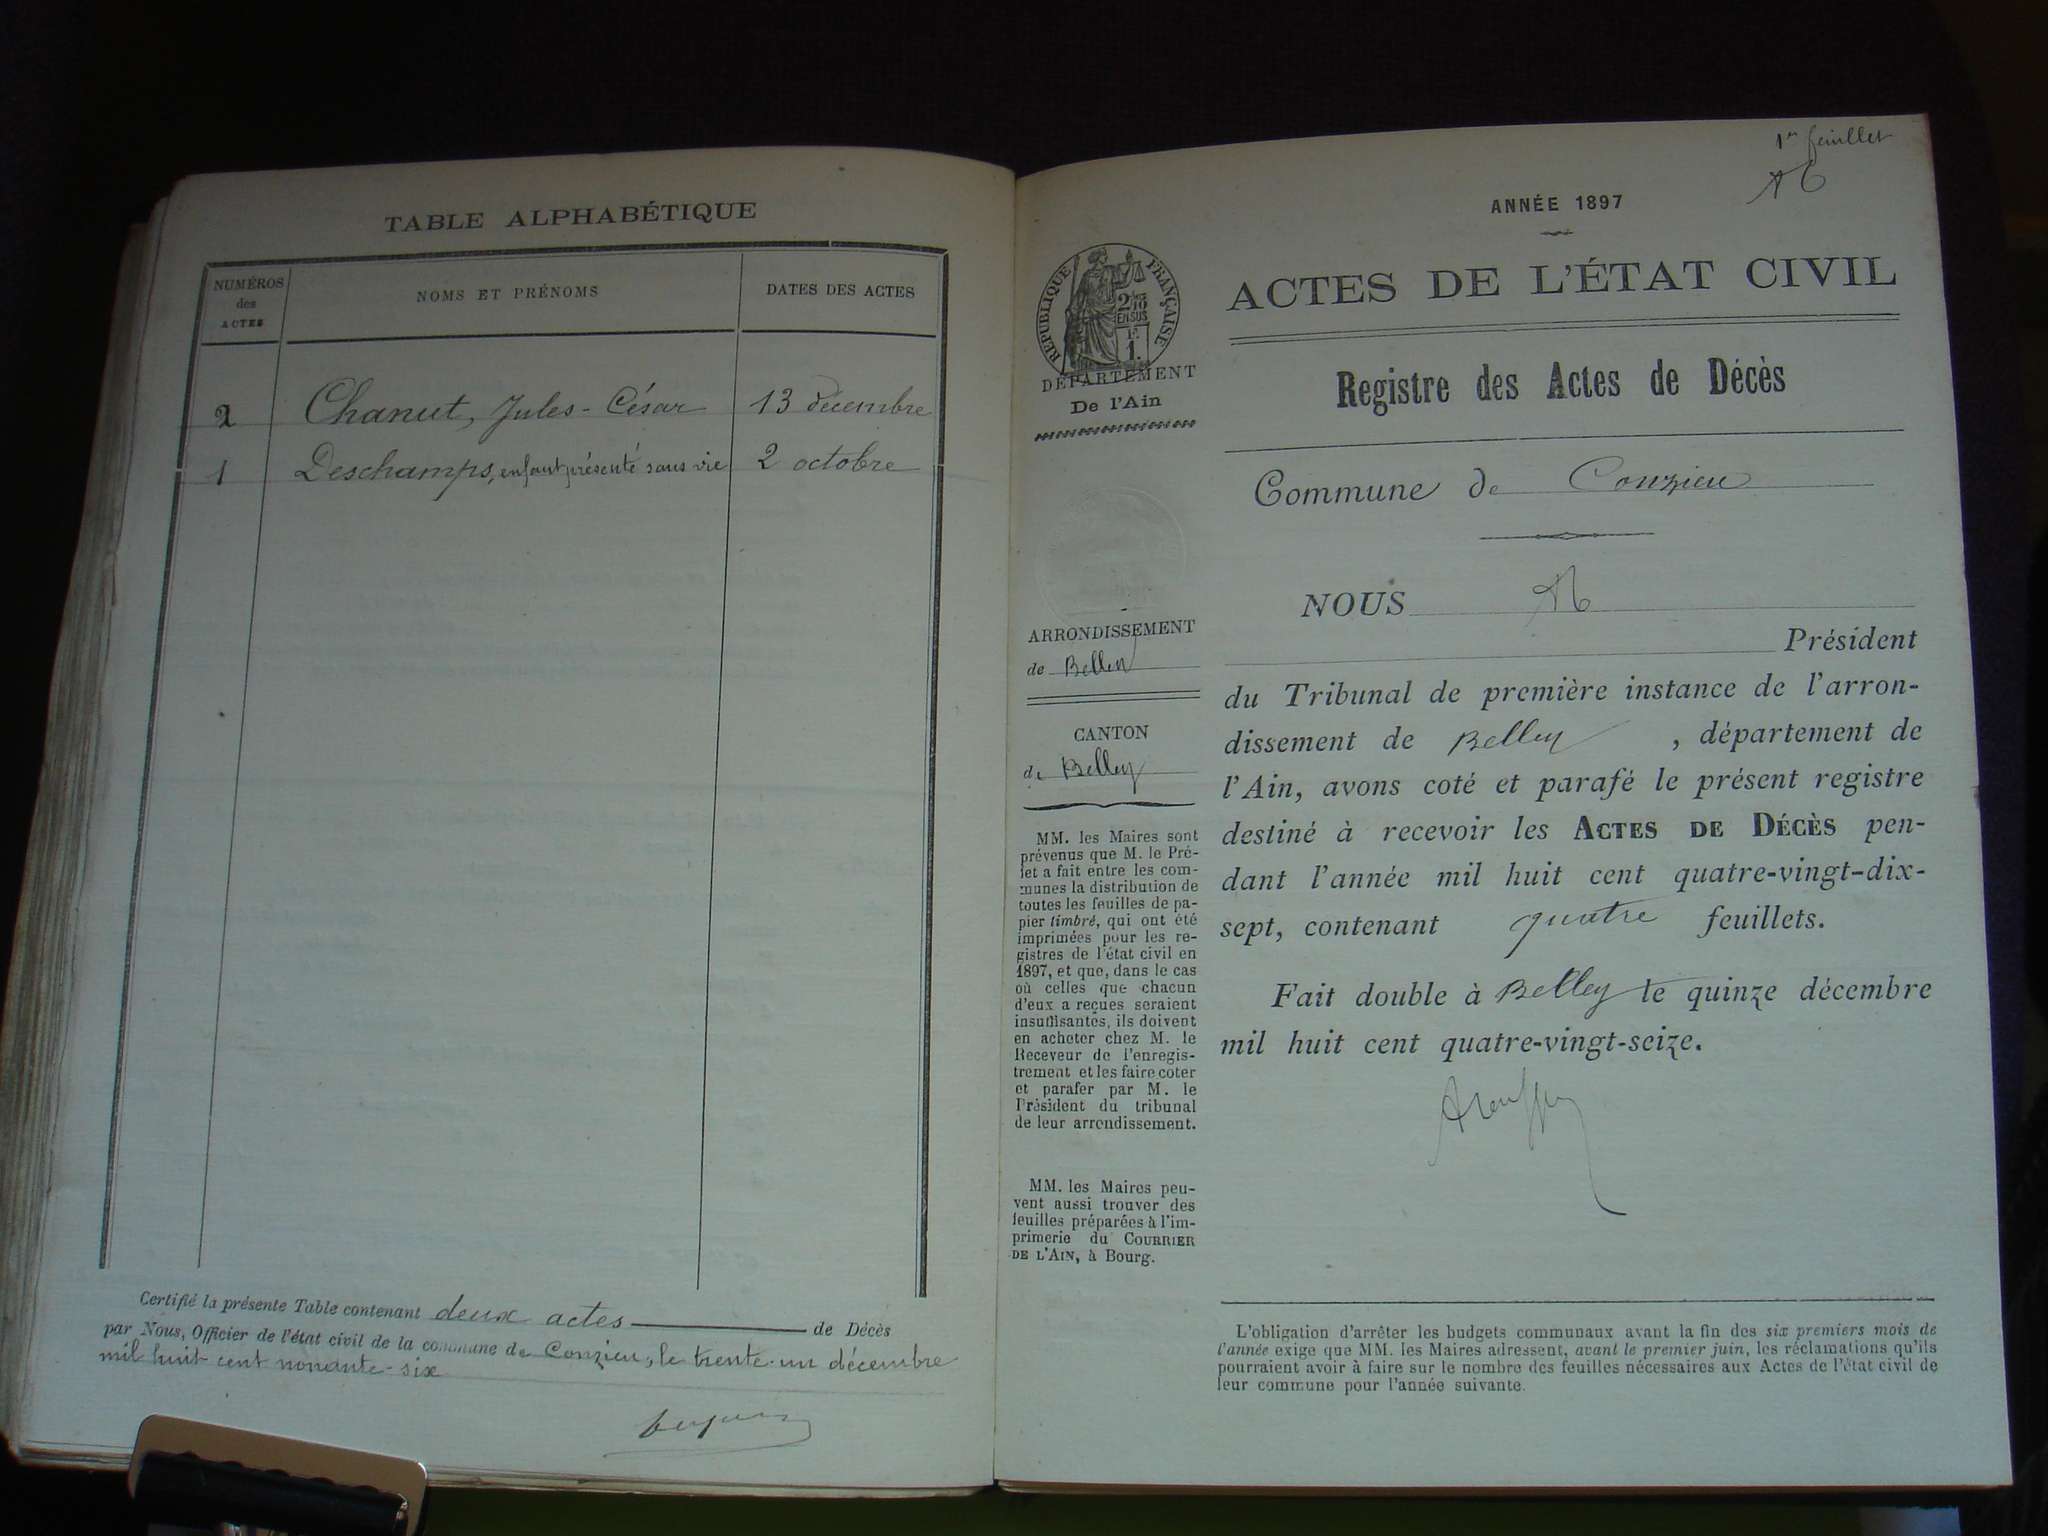 TABLE ALPHABÉTIQUE
NUMÉROS
des
ACTES
NOMS ET PRÉNOMS
DATES DES ACTES
2 Chanut, Jules-César 13 décembre
1 Deschamps, enfant présenté sans vie 2 octobre
Certifié la présente Table contenant deux actes de Décès
par Nous, Officier de l'état civil de la commune de Conzieu, le trente-un décembre
mil huit cent nonante-six
1er feuillet
ANNÉE 1897
RÉPUBLIQUE FRANÇAISE
DÉPARTEMENT
De l'Ain
ACTES DE L'ÉTAT CIVIL
Registre des Actes de Décès
Commune de Conzieu
ARRONDISSEMENT
de Belley
CANTON
de Belley
MM. les Maires sont
prévenus que M. le Pré-
fet a fait entre les com-
munes la distribution de
toutes les feuilles de pa-
pier timbré, qui ont été
imprimées pour les re-
gistres de l'état civil en
1897, et que, dans le cas
où celles que chacun
d'eux a reçues seraient
insuffisantes, ils doivent
en acheter chez M. le
Receveur de l'enregis-
trement et les faire coter
et parafer par M. le
Président du tribunal
de leur arrondissement.
MM. les Maires peu-
vent aussi trouver des
feuilles préparées à l'im-
primerie du COURRIER
DE L'AIN, à Bourg.
NOUS
Président
du Tribunal de première instance de l'arron-
dissement de Belley, département de
l'Ain, avons coté et parafé le présent registre
destiné à recevoir les ACTES DE DÉCÈS pen-
dant l'année mil huit cent quatre-vingt-dix-
sept, contenant quatre feuillets.
Fait double à Belley le quinze décembre
mil huit cent quatre-vingt-seize.
L'obligation d'arrêter les budgets communaux avant la fin des six premiers mois de
l'année exige que MM. les Maires adressent, avant le premier juin, les réclamations qu'ils
pourraient avoir à faire sur le nombre des feuilles nécessaires aux Actes de l'état civil de
leur commune pour l'année suivante.